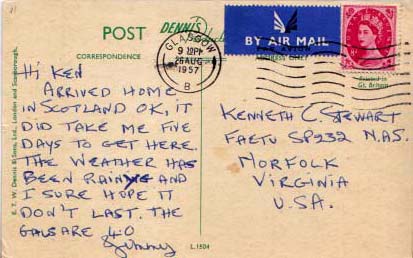 POST
DENNIS
CORRESPONDENCE
GLASGOW
9 30PM
26 AUG
1957
B
BY AIR MAIL
PAR AVION
ADDRESS ONLY
Printed in
Gt. Britain
E. T. W. Dennis & Sons, Ltd., London and Scarborough.
Hi Ken
ARRIVED HOME
IN SCOTLAND OK, IT
DID TAKE ME FIVE
DAYS TO GET HERE.
THE WEATHER HAS
BEEN RAINY AND
I SURE HOPE IT
DON'T LAST. THE
GALS ARE 40
Jimmy
L.1504
KENNETH C. STEWART
FAETU SP232 N.A.S.
NORFOLK
VIRGINIA
U.S.A.